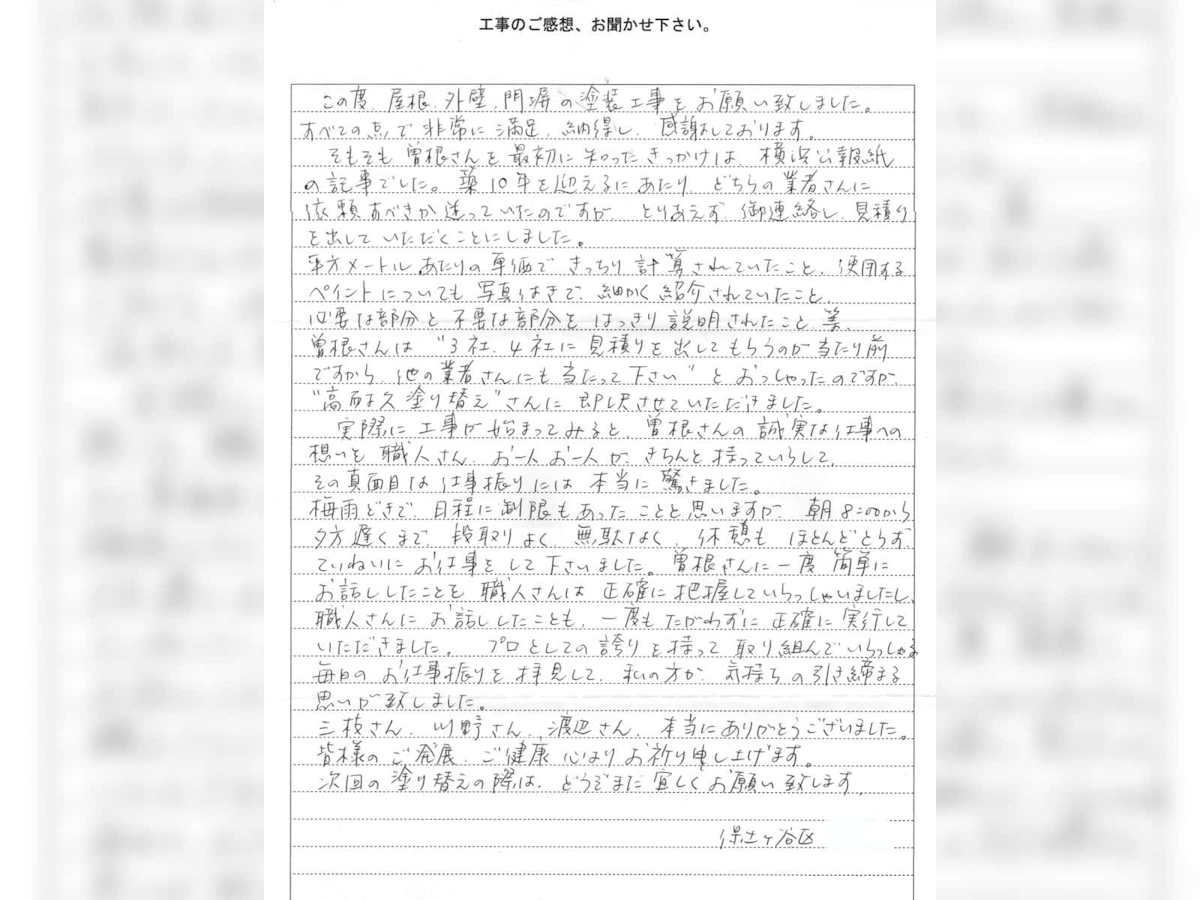 工事のご感想、お聞かせ下さい。
この度、屋根、外壁、門塀の塗装工事をお願い致しました。
すべての点で非常に満足、納得し、感謝しております。
そもそも曽根さんを最初に知ったきっかけは、横浜公報紙
の記事でした。築10年を迎えるにあたり、どちらの業者さんに
依頼すべきか迷っていたのですが、とりあえず御連絡し、見積り
を出していただくことにしました。
平方メートルあたりの単価できっちり計算されていたこと、使用する
ペイントについても写真付きで、細かく紹介されていたこと、
必要な部分と不要な部分をはっきり説明されたこと等、
曽根さんは“3社、4社に見積りを出してもらうのが当たり前
ですから、他の業者さんにも当たって下さい”とおっしゃったのですが、
“高耐久塗り替え”さんに即決させていただきました。
実際に工事が始まってみると、曽根さんの誠実な仕事への
想いを職人さん、お一人お一人が、きちんと持っていらして、
その真面目な仕事振りには本当に驚きました。
梅雨どきで、日程に制限もあったことと思いますが、朝8:00から
夕方遅くまで、段取りよく、無駄なく、休憩もほとんどとらず、
ていねいにお仕事をして下さいました。曽根さんに一度簡単に
お話ししたことを職人さんは正確に把握していらっしゃいましたし、
職人さんにお話ししたことも、一度もたがわずに正確に実行して
いただきました。プロとしての誇りを持って取り組んでいらっしゃる
毎日のお仕事振りを拝見して、私の方が気持ちの引き締まる
思いが致しました。
三枝さん、川野さん、渡辺さん、本当にありがとうございました。
皆様のご発展、ご健康心よりお祈り申し上げます。
次回の塗り替えの際は、どうぞまた宜しくお願い致します。
保土ヶ谷区